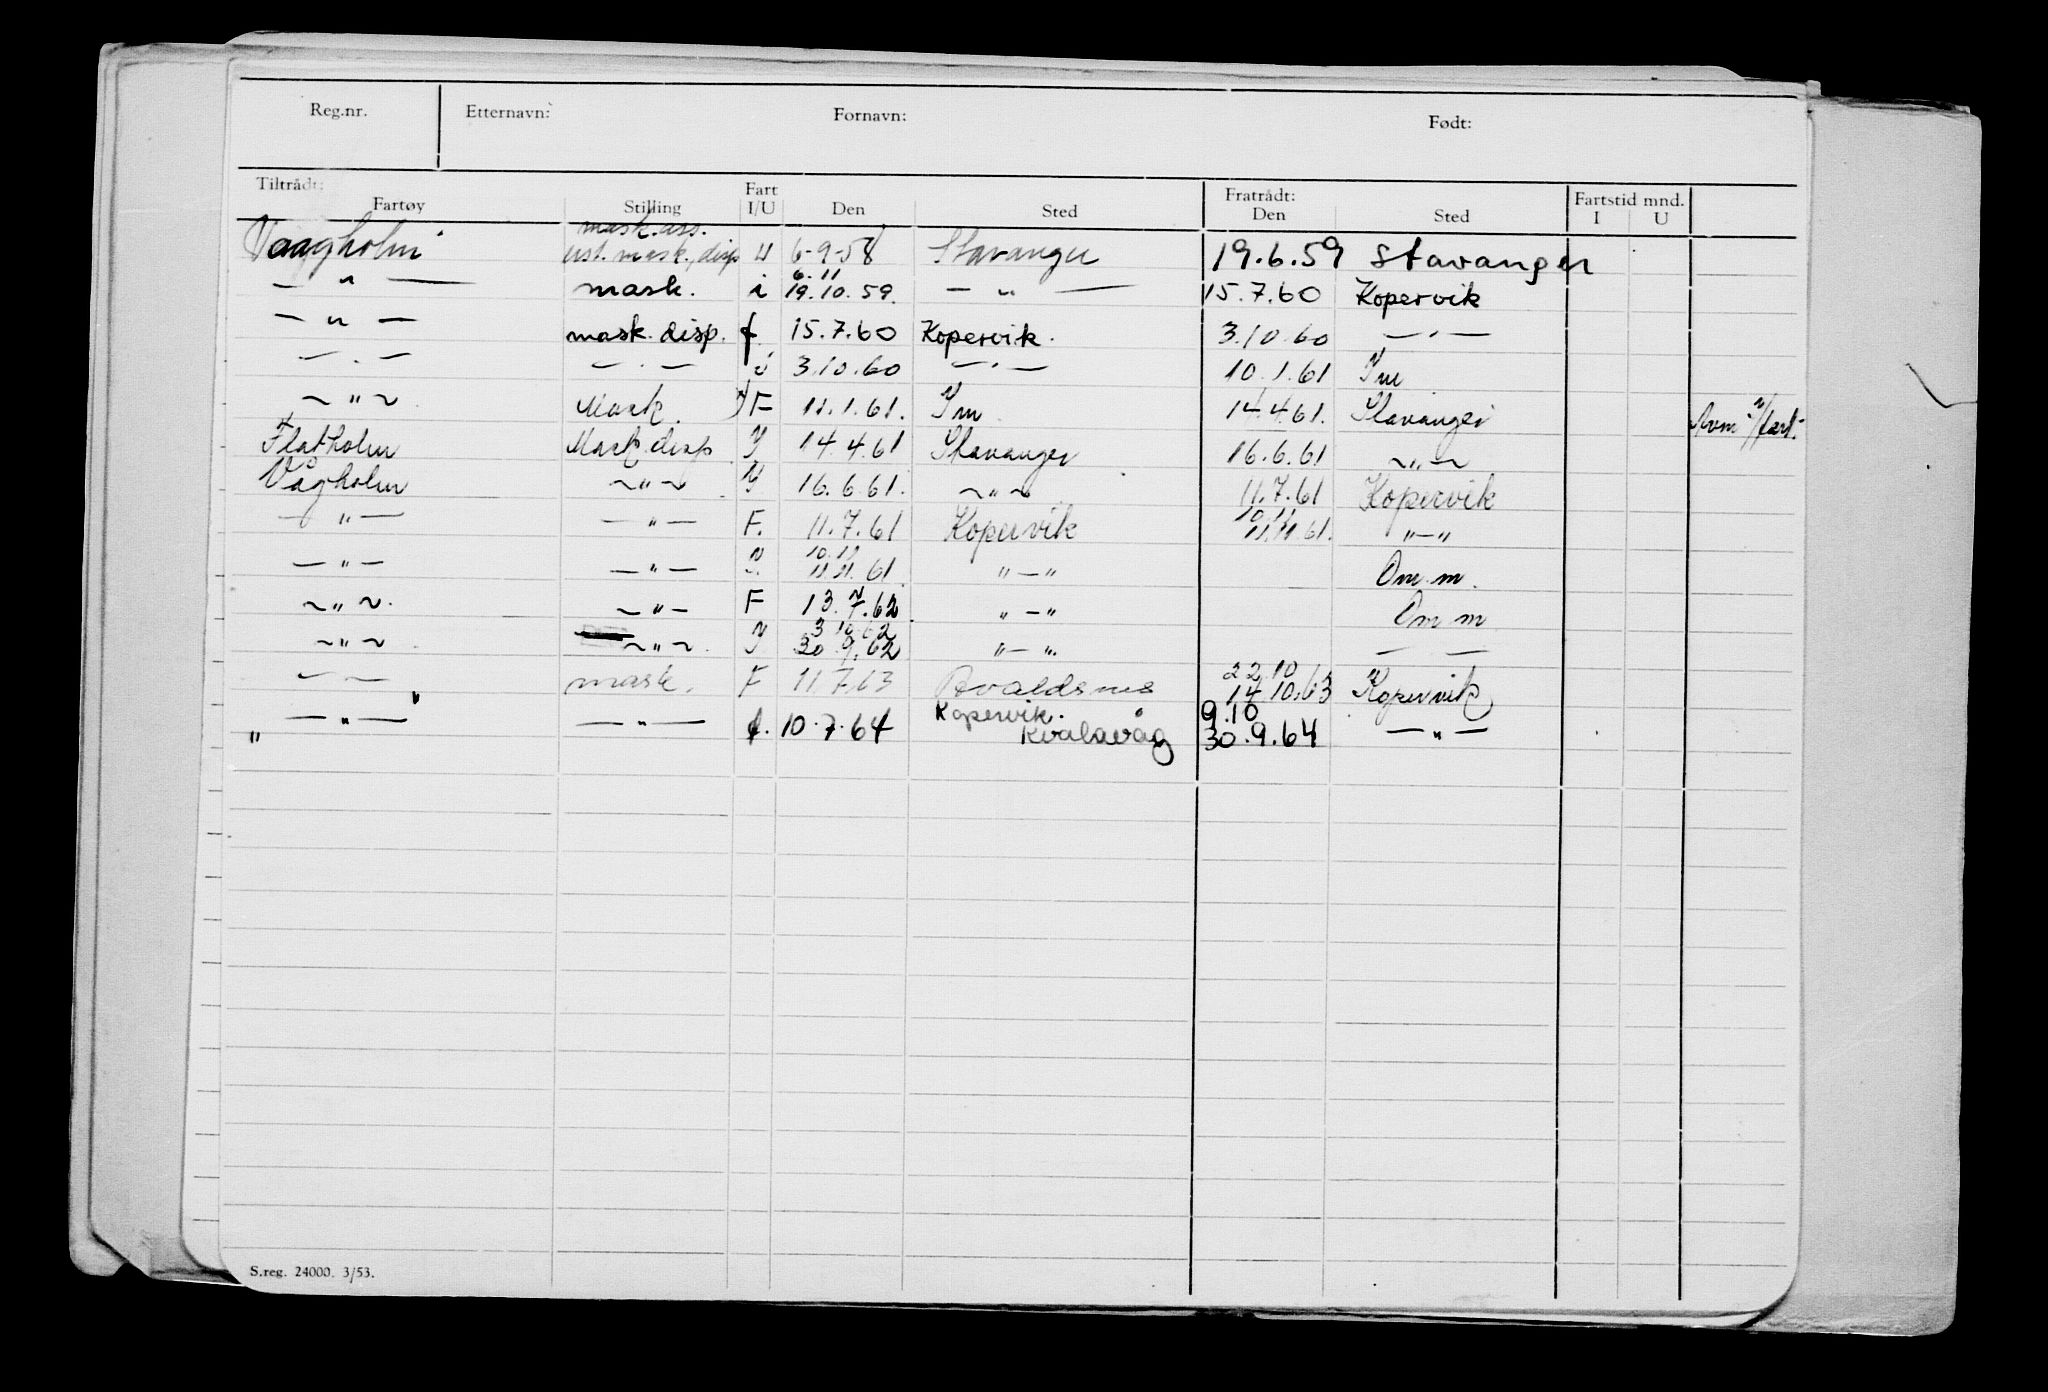 Reg.nr. Etternavn: Fornavn: Født:
Tiltrådt: Fart Fratrådt: Fartstid mnd.
Fartøy Stilling I/U Den Sted Den Sted I U
mask. ass.
Vaagholm ust. mask. disp U 6-9-58 Stavanger 19.6.59 Stavanger
6.11
— " — mask. i 19.10.59. — " — 15.7.60 Kopervik
— " — mask. disp. f 15.7.60 Kopervik. 3.10.60 — " —
— " — — " — i 3.10.60 — " — 10.1.61 Ym
~ " ~ Mask. F 11.1.61. Ym 14.4.61. Stavanger
Flatholm Mask. disp Y 14.4.61 Stavanger 16.6.61 ~ " ~
Vågholm ~ " ~ Y 16.6.61. ~ " ~ 11.7.61 Kopervik
— " — — " — F. 11.7.61 Kopervik 10.11 11.11.61. " — "
— " — — " — 10.11 11.11.61 " — " Om m.
~ " ~. ~ " — F 13.7.62 " — " Om m
3 10 62
~ " ~ ~ " ~. Y 30.9.62 " — ". — —
22.10
— — mask. F 11.7.63 Avaldsnes 14.10.63 Kopervik
Kopervik. 9.10
" — " — — " — f. 10.7.64 Kvalavåg 30.9.64 — " —
S.reg. 24000. 3/53.